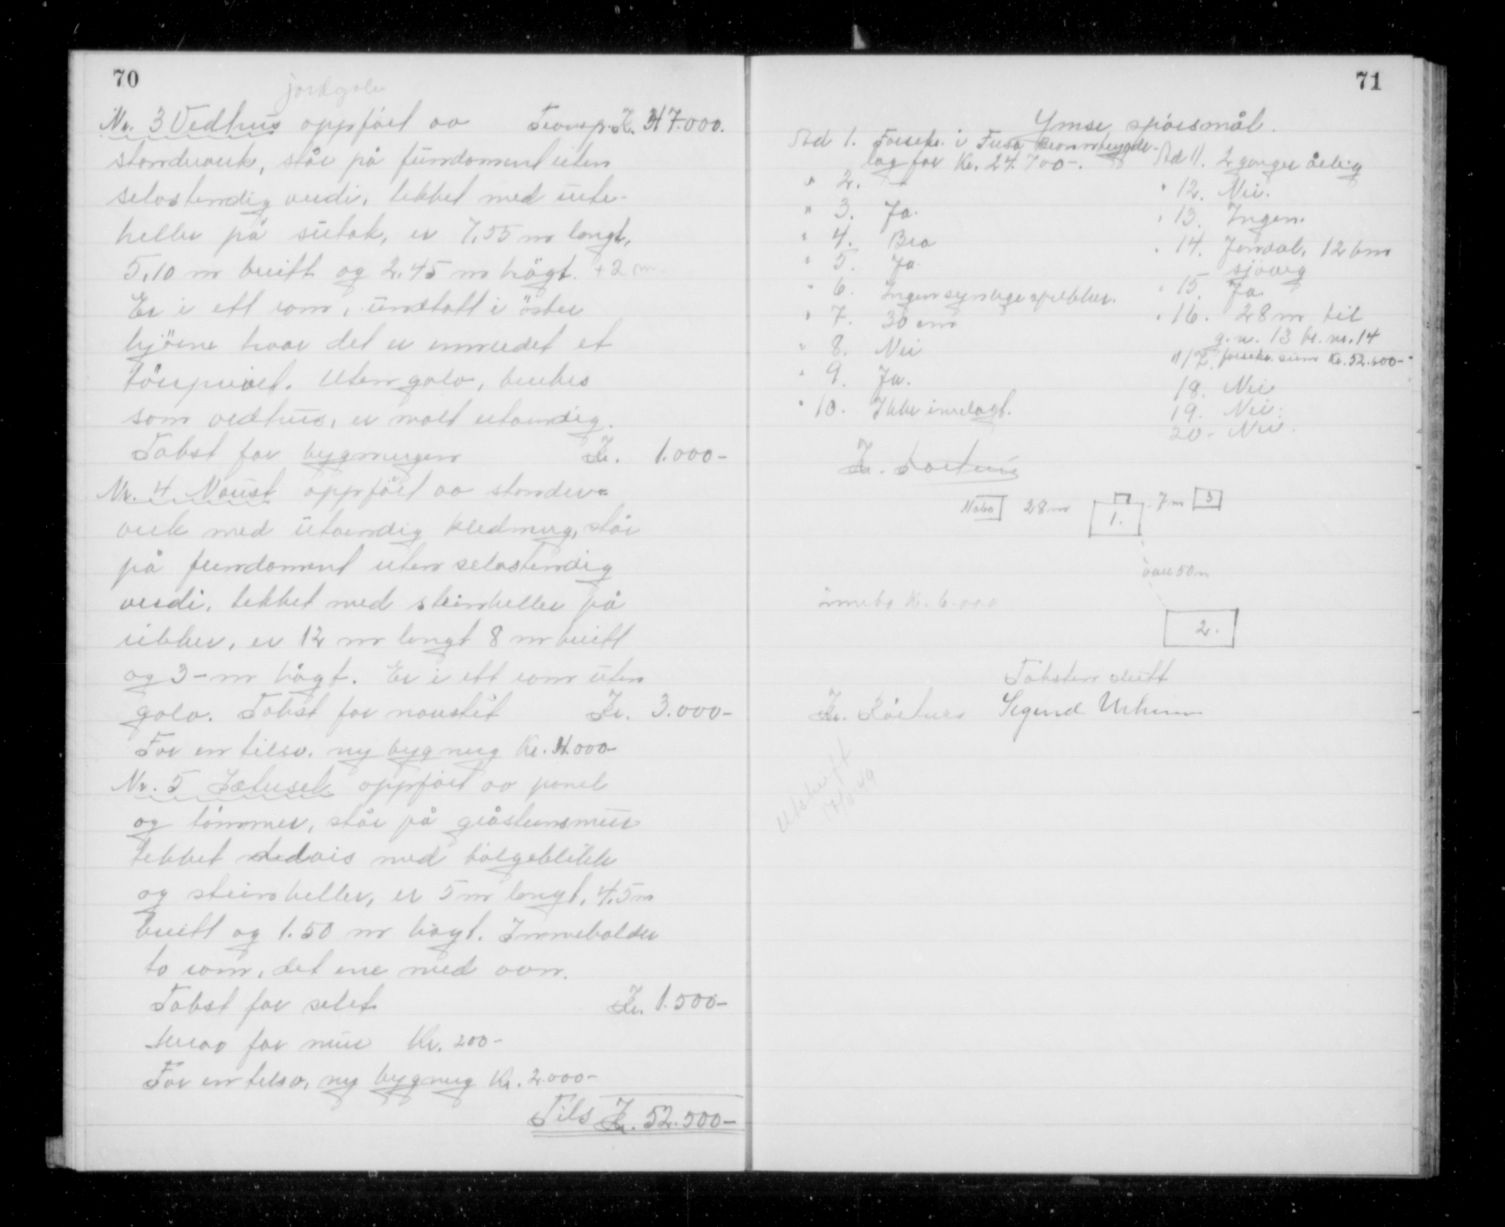 70
jordgolv
Nr. 3 Vedhus oppført av Transp. Kr. 47.000.
stenderverk, står på fundament uten
selvstendig verdi, tekket med ute-
heller på sutak, er 7,55 m langt,
5,10 m breitt og 2.45 m høgt. +2 m
Er i ett rom, unntatt i øster
hjørne hvor det er innredet et
tørrprivet. Uten golv, brukes
som vedhus, er malt utvendig.
Takst for bygningen Kr. 1.000-
Nr. 4 Naust oppført av stender-
verk med utvendig kledning, står
på fundament uten selvstendig
verdi, tekket med steinheller på
ribber, er 12 m langt 8 m breitt
og 3- m høgt. Er i ett rom uten
golv. Takst for naustet Kr. 3.000-
For en tilsv. ny bygning Kr. 4.000-
Nr. 5 Sætersel oppført av panel
og tømmer, står på gråsteinsmur
tekket delvis med bølgeblikk
og steinheller, er 5 m langt, 4.5 m
breitt og 1.50 m høgt. Inneholder
to rom, det ene med ovn.
Takst for selet Kr. 1.500-
Herav for mur Kr. 200-
For en tilsv. ny bygning Kr. 2.000-
Tils Kr. 52.500-
71
Ymse spørsmål.
Ad 1. Forsikr. i Fusa brannbygde-
lag for Kr. 27.700-.
" 2. "
" 3. Ja.
" 4. Bra
" 5. Ja
" 6. Ingen synlige sprekker.
" 7. 30 cm
" 8. Nei
" 9. Ja.
" 10. Ikke innlagt.
Ad 11. 2 ganger årlig
" 12. Nei.
" 13. Ingen.
" 14. 12 km
sjøveg
" 15. Ja
" 16. 28 m til
g.nr. 13 br. nr. 14
" 17. forsikr. sum Kr. 52.500-
18. Nei
19. Nei.
20. Nei.
Nabo 28 m 1. 7 m 3
over 50 m
2.
innebo Kr. 6.000
Taksten slutt
Utskrift